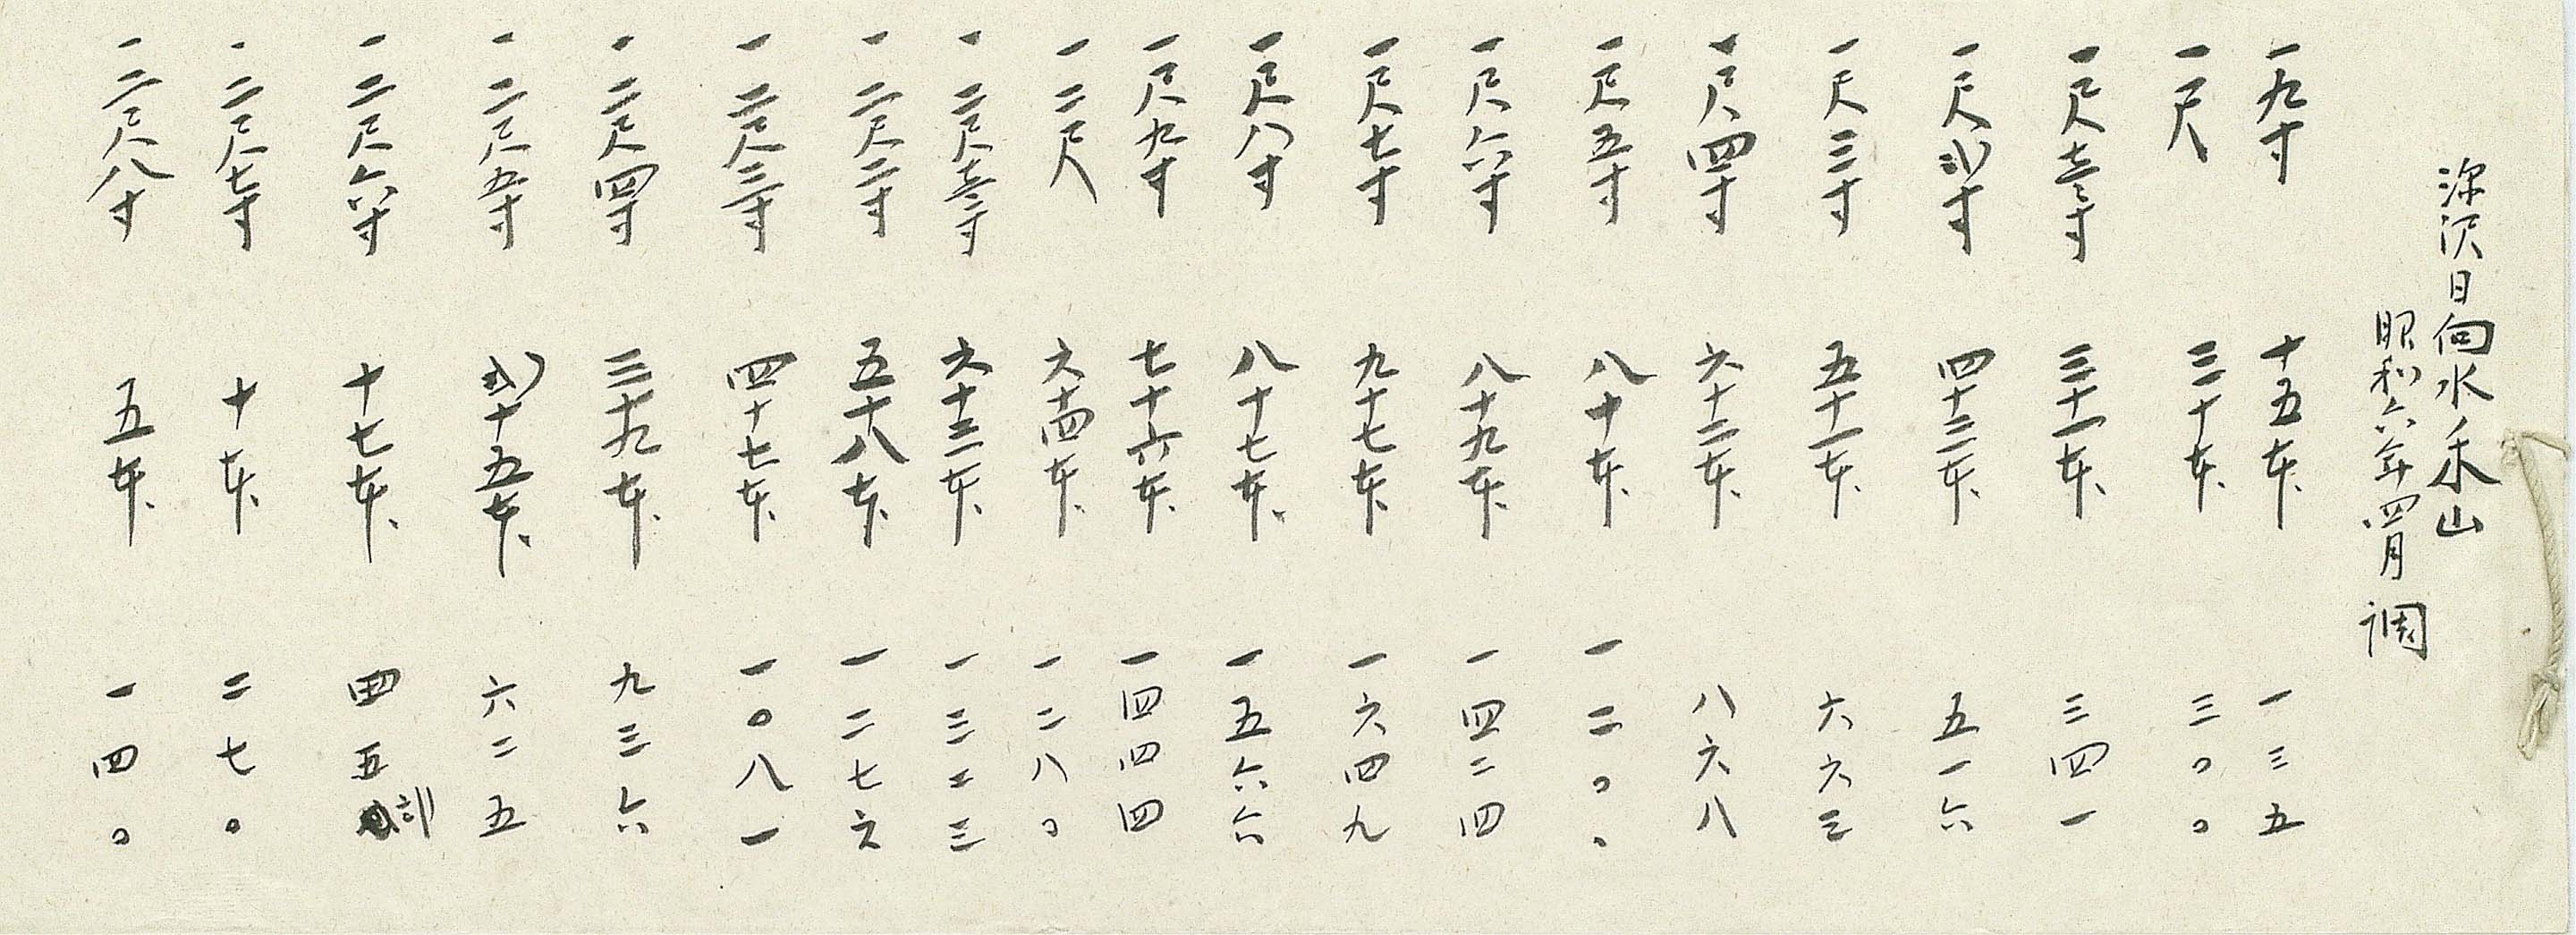 深沢日向水禾山
昭和六年四月 調
一九寸 十五本、 一三五
一尺 三十本、 三〇〇
一尺壱寸 三十一本、 三四一
一尺弐寸 四十三本、 五一六
一尺三寸 五十一本、 六六三
一尺四寸 六十二本、 八六八
一尺五寸 八十本、 一二〇〇
一尺六寸 八十九本、 一四二四
一尺七寸 九十七本、 一六四九
一尺八寸 八十七本、 一五六六
一尺九寸 七十六本、 一四四四
一二尺 六十四本、 一二八〇
一二尺壱寸 六十三本、 一三二三
一二尺二寸 五十八本、 一二七六
一二尺三寸 四十七本、 一〇八一
一二尺四寸 三十九本、 九三六
一二尺五寸 弐十五本、 六二五
一二尺六寸 十七本、 四五
一二尺七寸 十本、 二七〇
一二尺八寸 五本、 一四〇